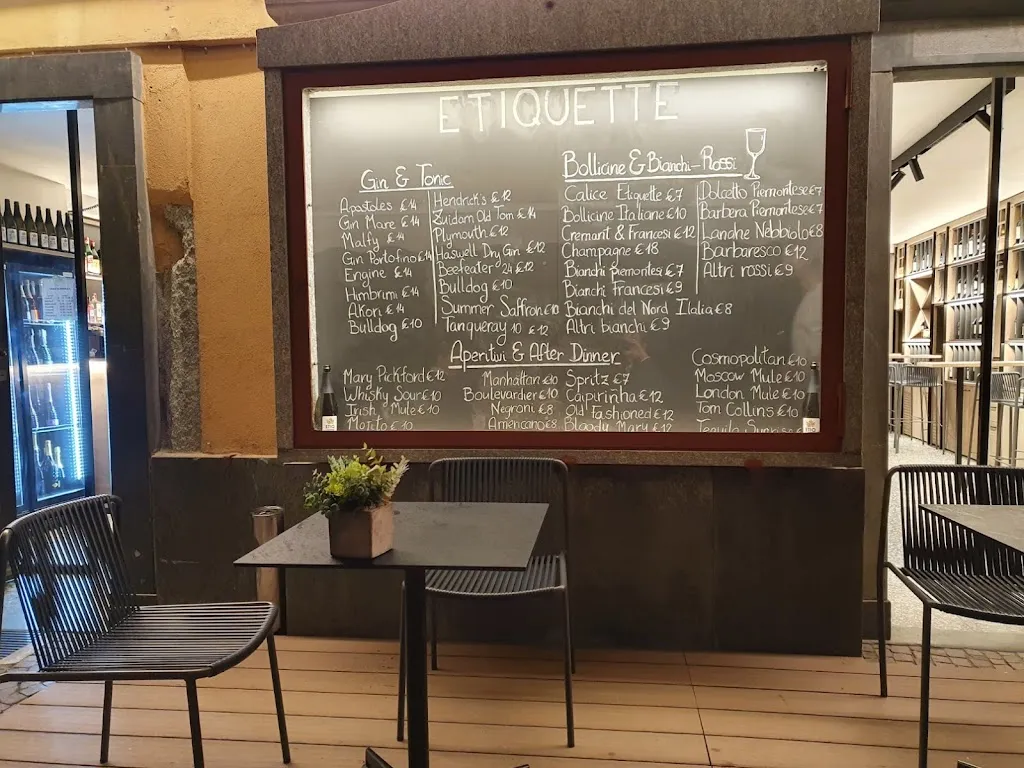 ETIQUETTE
Gin & Tonic
Apostoles €14
Gin Mare €14
Malfy €14
Gin Portofino €14
Engine €14
Ambrumi €14
Akori €14
Bulldog €10
Hendrick's €12
Zuidam Old Tom €14
Plymouth €12
Haswell Dry Gin €12
Beefeater 24 €12
Bulldog €10
Summer Saffron €10
Tanqueray 10 €12
Bollicine & Bianchi-Rossi
Calice Etiquette €7
Bollicine Italiane €10
Cremant & Francesi €12
Champagne €18
Bianchi Piemontesi €7
Bianchi Francesi €9
Bianchi del Nord Italia €8
Altri bianchi €9
Dolcetto Piemontese €7
Barbera Piemontese €7
Langhe Nebbiolo €8
Barbaresco €12
Altri rossi €9
Aperitivi & After Dinner
Mary Pickford €12
Whisky Sour €10
Irish Mule €10
Mojito €10
Manhattan €10
Boulevardier €10
Negroni €8
Americano €8
Spritz €7
Caipirinha €12
Old Fashioned €12
Bloody Mary €12
Cosmopolitan €10
Moscow Mule €10
London Mule €10
Tom Collins €10
Tequila Sunrise